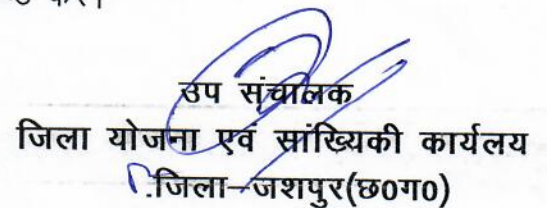 उप संचालक
जिला योजना एवं सांख्यिकी कार्यलय
जिला-जशपुर(छ0ग0)